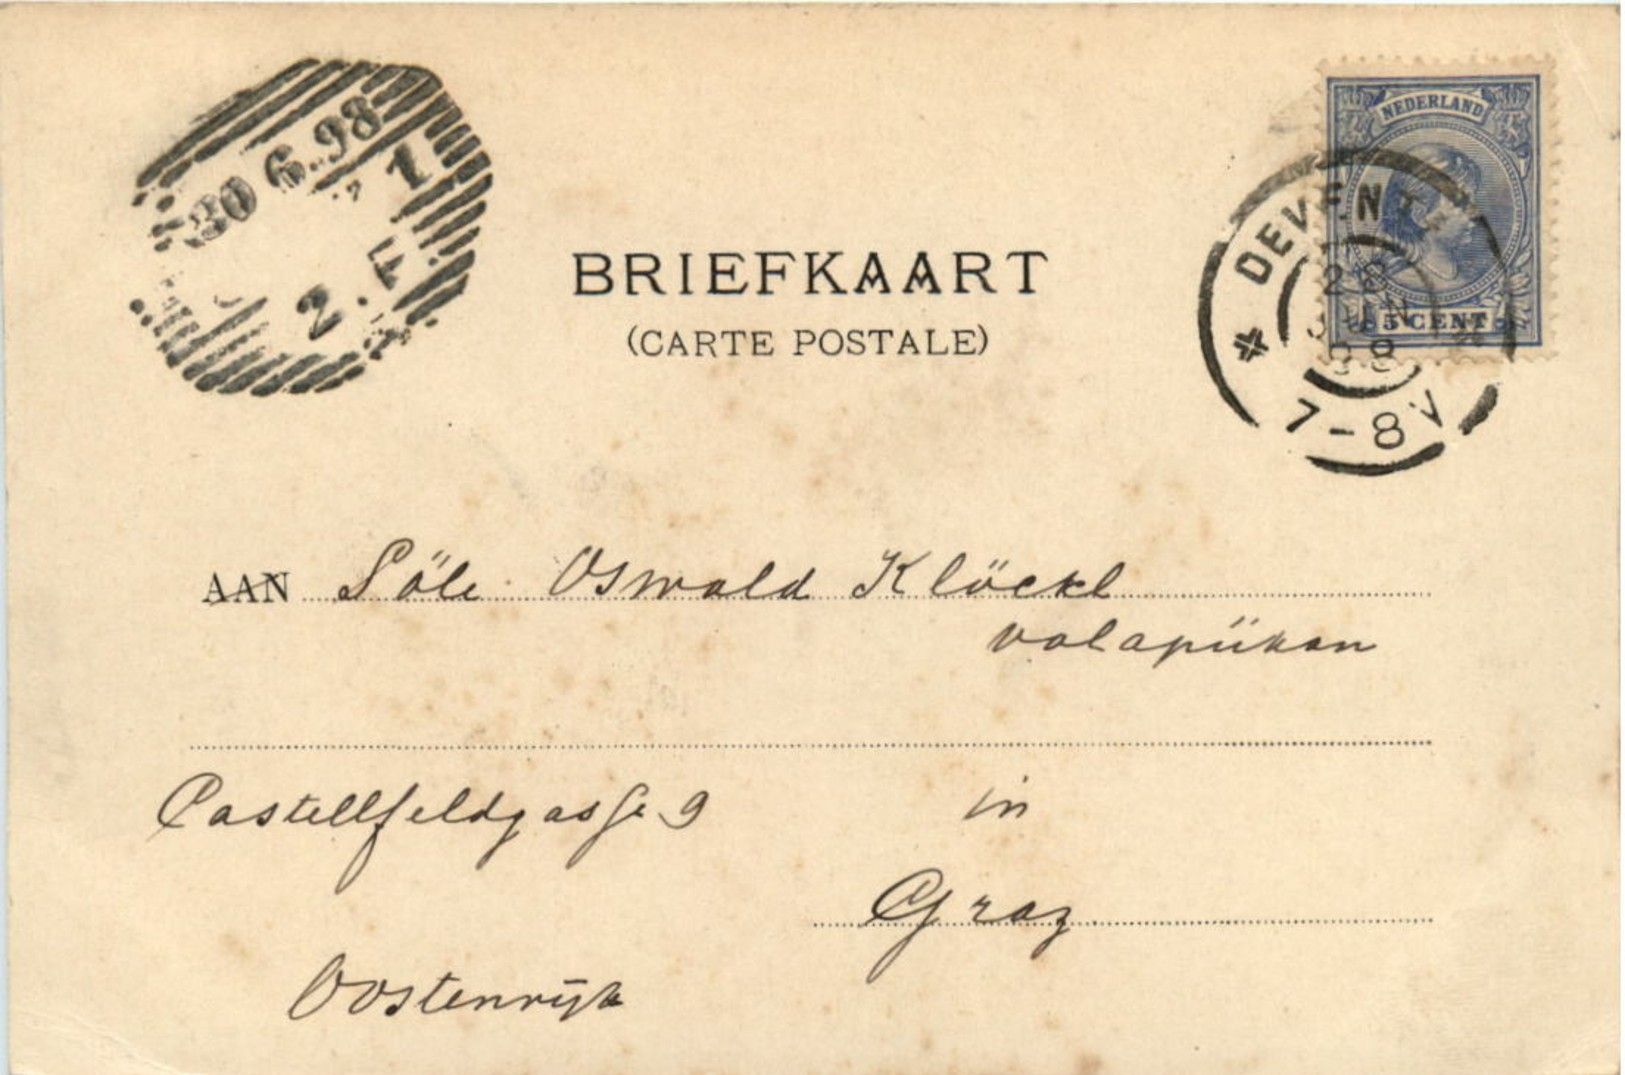 30 6.98
1
2.T.
BRIEFKAART
(CARTE POSTALE)
NEDERLAND
5 CENT
DEVENTE
28
JUN
98
7-8V
AAN Söle Oswald Klöckl
volapükan
Castellfeldgasse 9 in
Graz
Oostenrijk